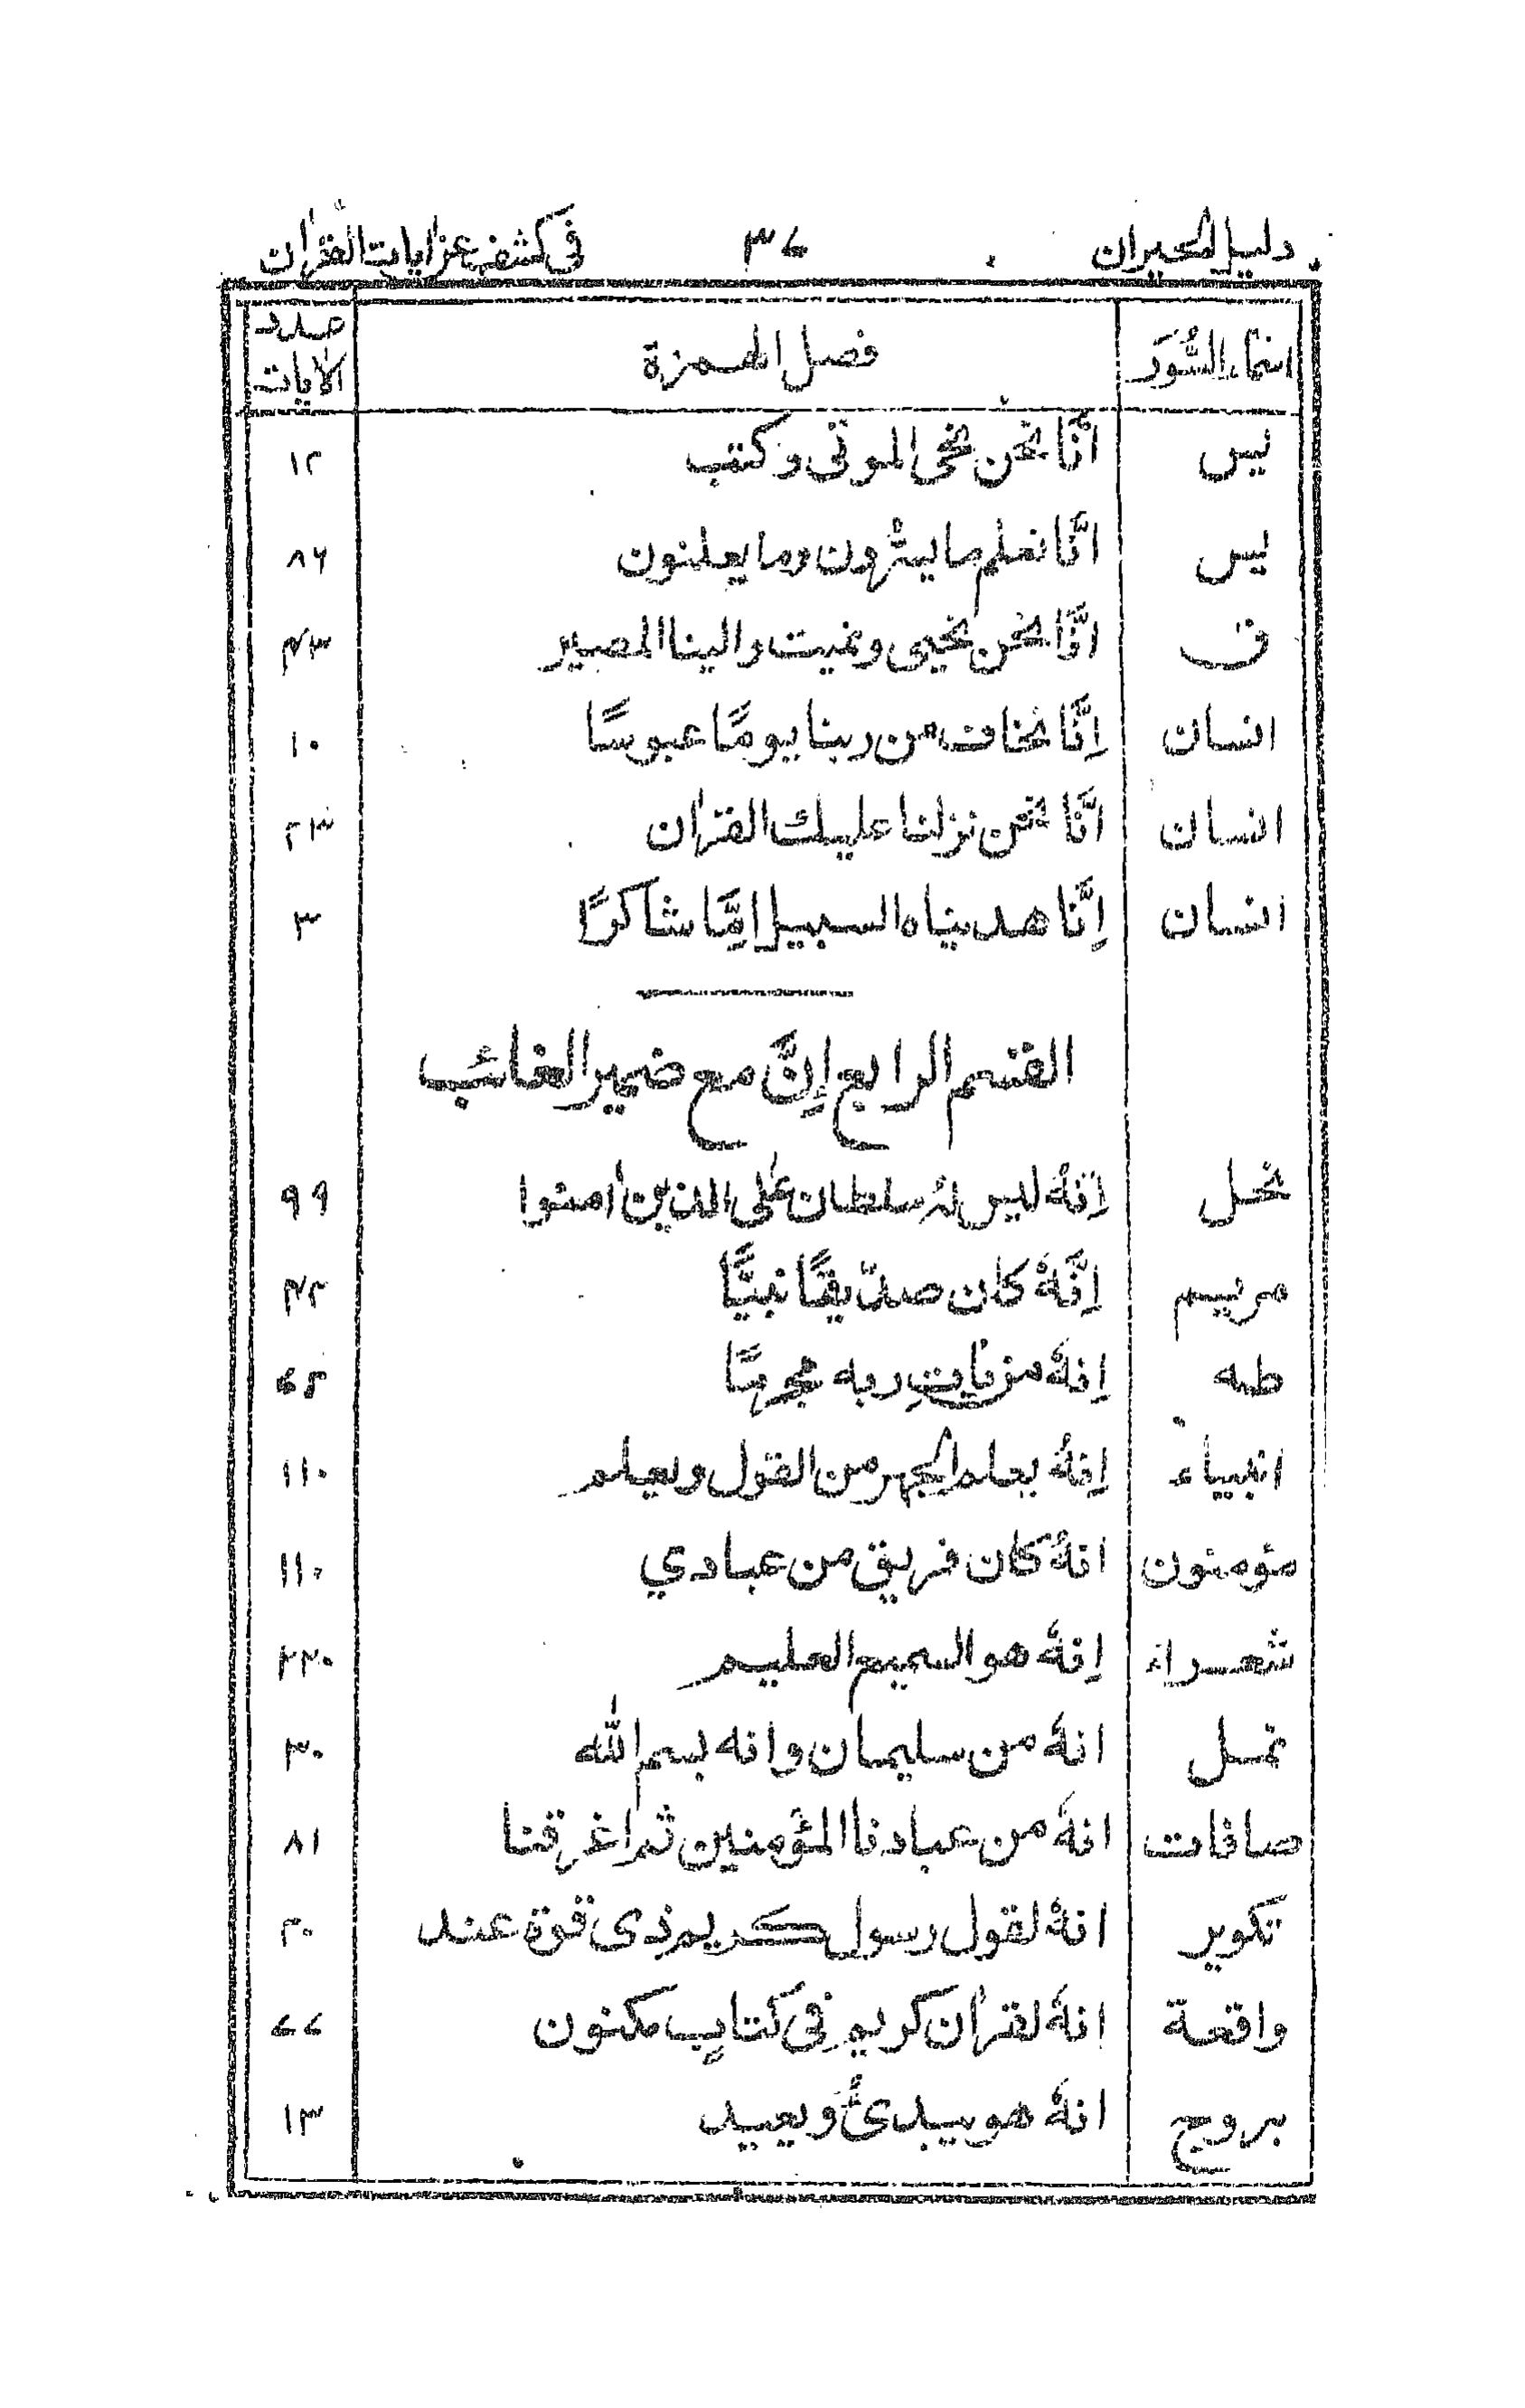 دليل الحيران ٣٧ في كشف عن آيات القرآن
اسماء السُّوَر فصل الهمزة عدد الآيات
يس انَّا نحن نحى الموتى وكتب ١٢
يس انَّا نعلم ما يسرّون وما يعلنون ٨٦
ق انَّا نحن نحيى ونميت والينا المصير ٤٣
انسان اِنَّا نخاف من ربنا يومًا عبوسًا ١٠
انسان انَّا نحن نزلنا عليك القرآن ٢٣
انسان اِنَّا هديناه السبيل اِمَّا شاكرًا ٣
القسم الرابع اِنَّ مع ضمير الغائب
نحل اِنَّهٗ ليس لهٗ سلطان على الذين اٰمنوا ٩٩
مريم اِنَّهٗ كان صدّيقًا نبيًّا ٤٢
طه اِنهٗ من ياتِ ربه مجرمًا ٧٥
انبياء اِنهٗ يعلم الجهر من القول ويعلم ١١٠
مؤمنون انهٗ كان فريق من عبادي ١١٠
شعراء اِنهٗ هو السميع العليم ٢٢٠
نمل انهٗ من سليمان وانه بسم الله ٣٠
صافات انهٗ من عبادنا المؤمنين ثم اغرقنا ٨١
تكوير انهٗ لقول رسول كريم ذى قوة عند ٢٠
واقعة انهٗ لقرآن كريم فِى كتابٍ مكنون ٧٧
بروج انهٗ هو يبدئُ ويعيد ١٣